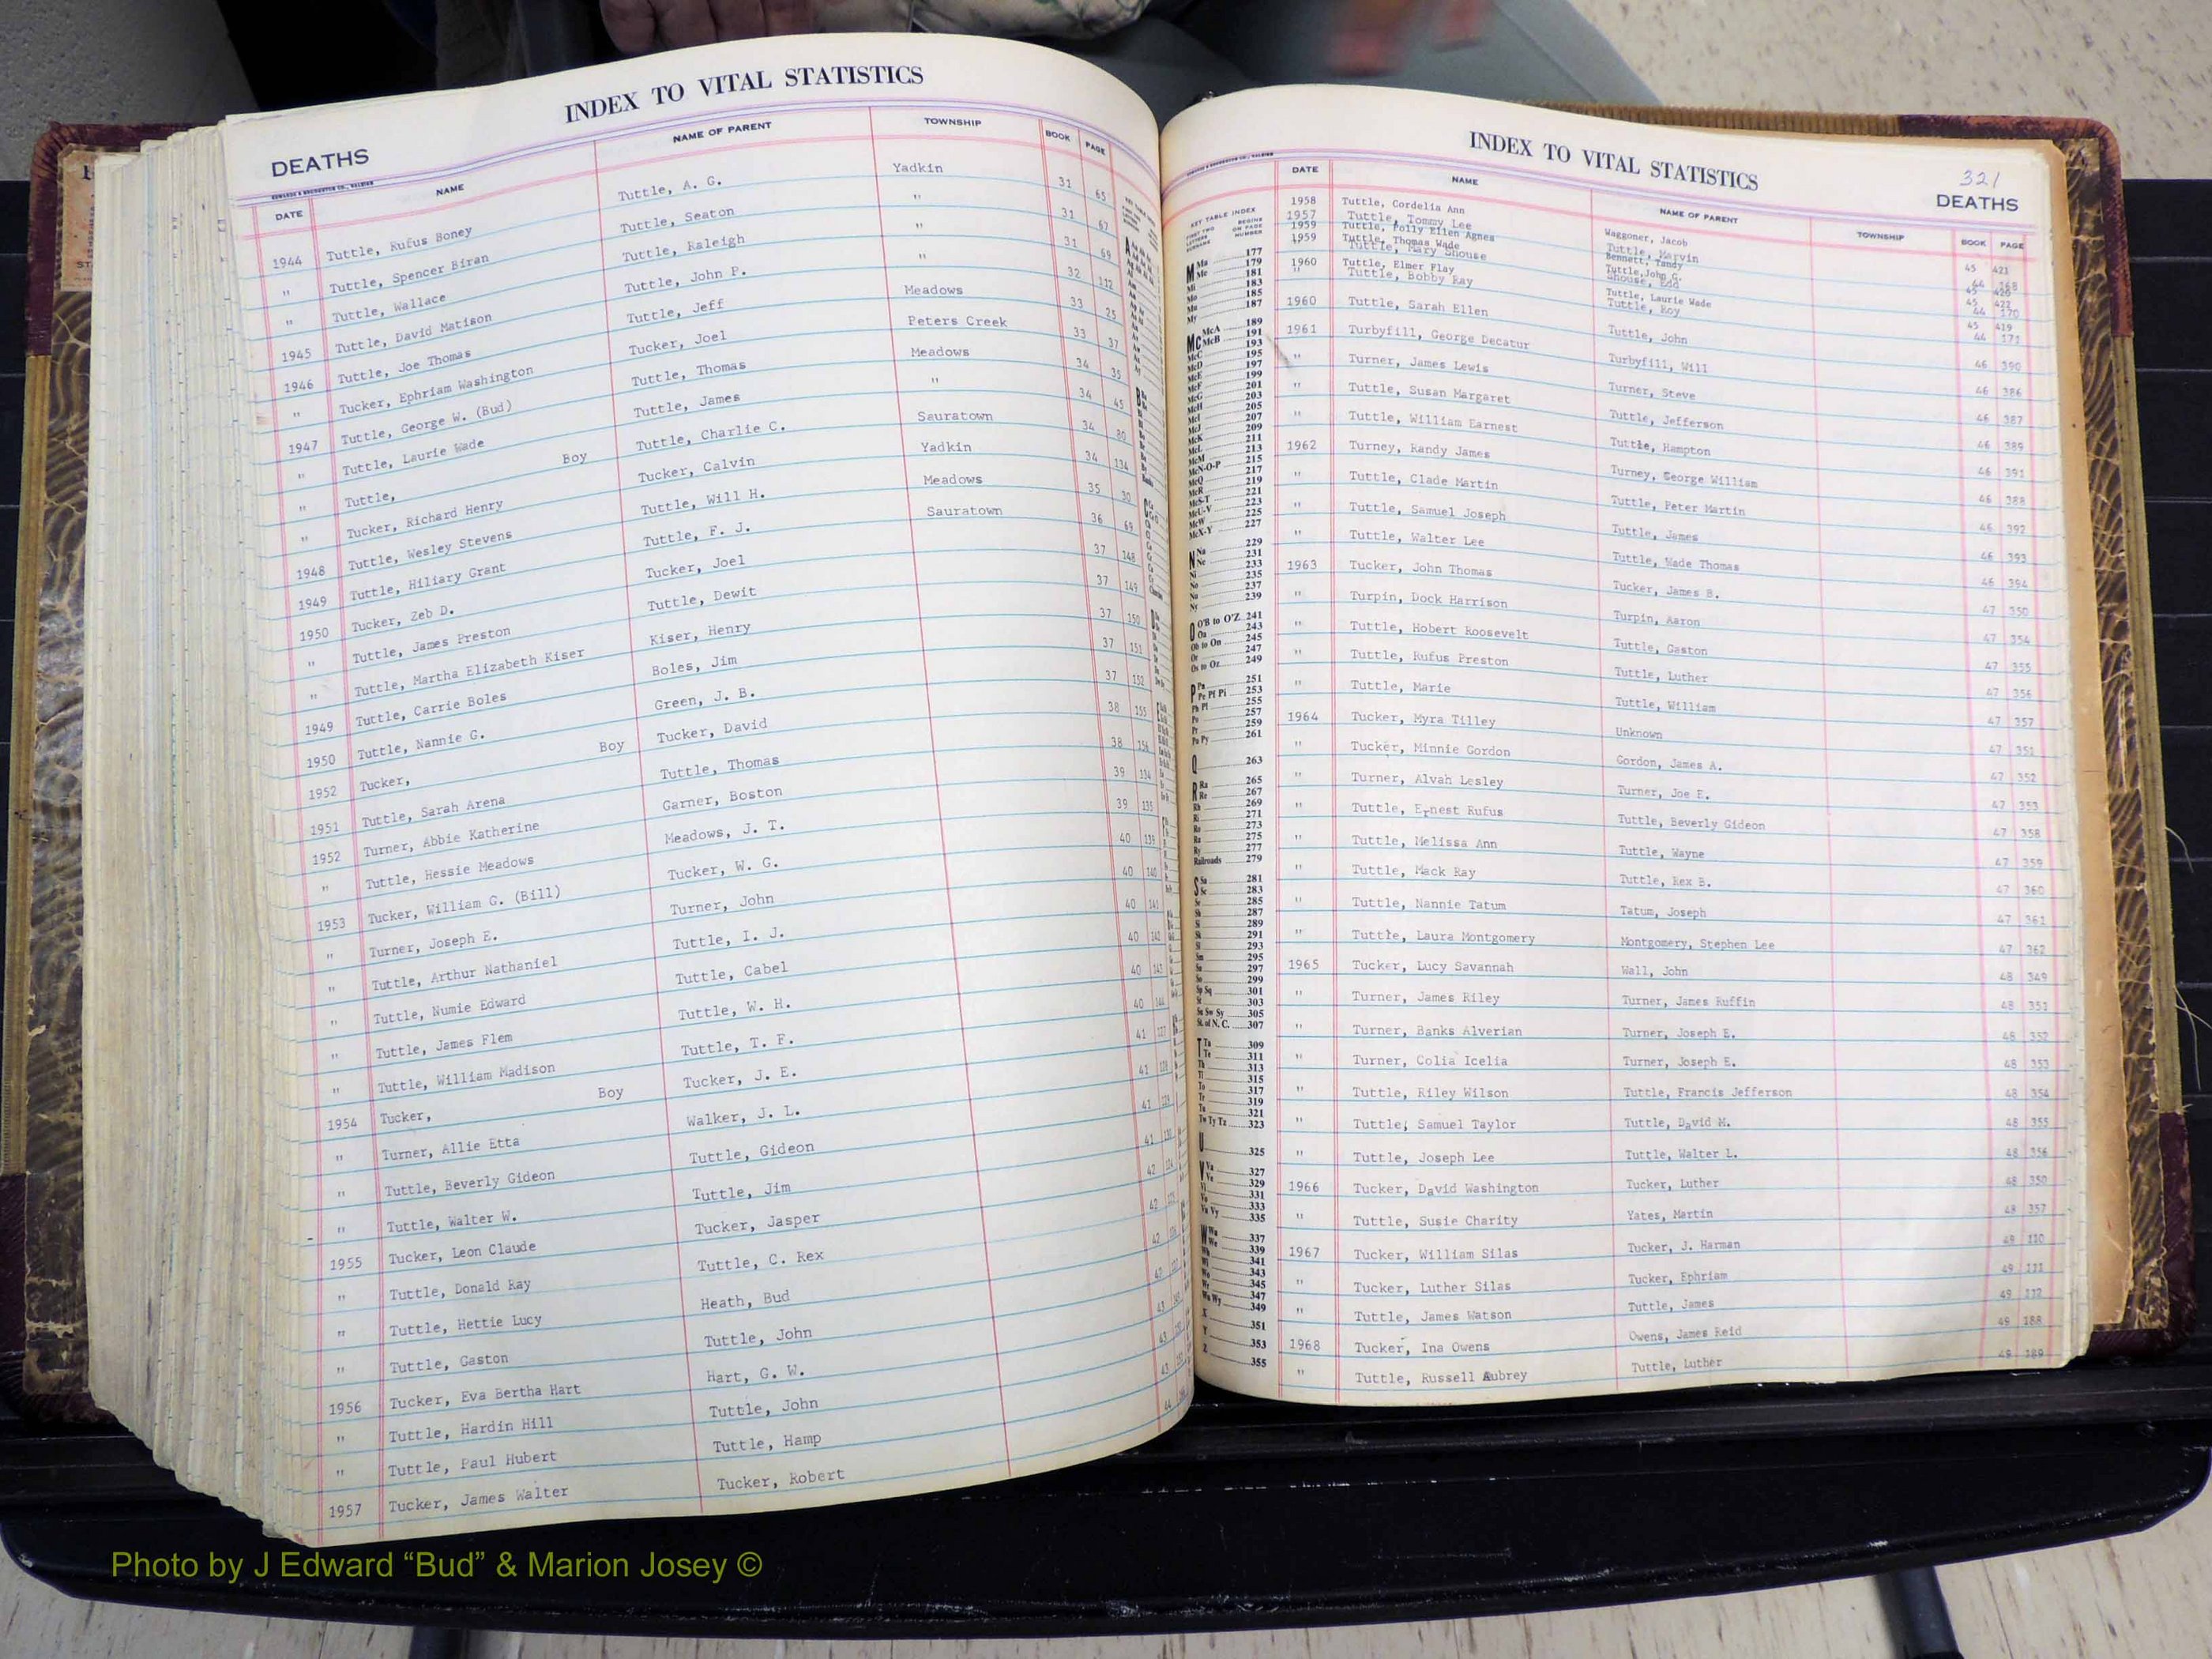 INDEX TO VITAL STATISTICS
DEATHS
DATE NAME NAME OF PARENT TOWNSHIP BOOK PAGE
1944 Tuttle, Rufus Boney Tuttle, A. G. Yadkin 31 65
" Tuttle, Spencer Biran Tuttle, Seaton " 31 67
" Tuttle, Wallace Tuttle, Raleigh " 31 69
1945 Tuttle, David Matison Tuttle, John P. " 32 112
1946 Tuttle, Joe Thomas Tuttle, Jeff Meadows 33 25
" Tucker, Ephriam Washington Tucker, Joel Peters Creek 33 37
1947 Tuttle, George W. (Bud) Tuttle, Thomas Meadows 34 35
" Tuttle, Laurie Wade Tuttle, James " 34 45
" Tuttle, Boy Tuttle, Charlie C. Sauratown 34 80
" Tucker, Richard Henry Tucker, Calvin Yadkin 34 134
1948 Tuttle, Wesley Stevens Tuttle, Will H. Meadows 35 30
1949 Tuttle, Hiliary Grant Tuttle, F. J. Sauratown 36 69
1950 Tucker, Zeb D. Tucker, Joel 37 148
" Tuttle, James Preston Tuttle, Dewit 37 149
" Tuttle, Martha Elizabeth Kiser Kiser, Henry 37 150
1949 Tuttle, Carrie Boles Boles, Jim 37 151
1950 Tuttle, Nannie G. Green, J. B. 37 152
1952 Tucker, Boy Tucker, David 38 155
1951 Tuttle, Sarah Arena Tuttle, Thomas 38 156
1952 Turner, Abbie Katherine Garner, Boston 39 134
" Tuttle, Hessie Meadows Meadows, J. T. 39 135
1953 Tucker, William G. (Bill) Tucker, W. G. 40 139
" Turner, Joseph E. Turner, John 40 140
" Tuttle, Arthur Nathaniel Tuttle, I. J. 40 141
" Tuttle, Numie Edward Tuttle, Cabel 40 142
" Tuttle, James Flem Tuttle, W. H. 40 143
" Tuttle, William Madison Tuttle, T. F. 40 144
1954 Tucker, Boy Tucker, J. E. 41
" Turner, Allie Etta Walker, J. L. 41
" Tuttle, Beverly Gideon Tuttle, Gideon 41
" Tuttle, Walter W. Tuttle, Jim 41
1955 Tucker, Leon Claude Tucker, Jasper 42
" Tuttle, Donald Ray Tuttle, C. Rex 42
" Tuttle, Hettie Lucy Heath, Bud 42
" Tuttle, Gaston Tuttle, John 42
1956 Tucker, Eva Bertha Hart Hart, G. W. 43
" Tuttle, Hardin Hill Tuttle, John 43
" Tuttle, Paul Hubert Tuttle, Hamp 43
1957 Tucker, James Walter Tucker, Robert 44
INDEX TO VITAL STATISTICS
321
DEATHS
DATE NAME NAME OF PARENT TOWNSHIP BOOK PAGE
1958 Tuttle, Cordelia Ann Waggoner, Jacob 45 421
1957 Tuttle, Tommy Lee Tuttle, Marvin 44 168
1959 Tuttle, Polly Ellen Agnes Bennett, Tandy 45 420
1959 Tuttle, Thomas Wade Tuttle, John G. 45 422
Tuttle, Mary Shouse Shouse, Edd 44 170
1960 Tuttle, Elmer Flay Tuttle, Laurie Wade 45 419
" Tuttle, Bobby Ray Tuttle, Roy 44 171
1960 Tuttle, Sarah Ellen Tuttle, John 46 390
1961 Turbyfill, George Decatur Turbyfill, Will 46 386
" Turner, James Lewis Turner, Steve 46 387
" Tuttle, Susan Margaret Tuttle, Jefferson 46 389
" Tuttle, William Earnest Tuttle, Hampton 46 391
1962 Turney, Randy James Turney, George William 46 388
" Tuttle, Clade Martin Tuttle, Peter Martin 46 392
" Tuttle, Samuel Joseph Tuttle, James 46 393
" Tuttle, Walter Lee Tuttle, Wade Thomas 46 394
1963 Tucker, John Thomas Tucker, James B. 47 350
" Turpin, Dock Harrison Turpin, Aaron 47 354
" Tuttle, Hobert Roosevelt Tuttle, Gaston 47 355
" Tuttle, Rufus Preston Tuttle, Luther 47 356
" Tuttle, Marie Tuttle, William 47 357
1964 Tucker, Myra Tilley Unknown 47 351
" Tucker, Minnie Gordon Gordon, James A. 47 352
" Turner, Alvah Lesley Turner, Joe E. 47 353
" Tuttle, Ernest Rufus Tuttle, Beverly Gideon 47 358
" Tuttle, Melissa Ann Tuttle, Wayne 47 359
" Tuttle, Mack Ray Tuttle, Rex B. 47 360
" Tuttle, Nannie Tatum Tatum, Joseph 47 361
" Tuttle, Laura Montgomery Montgomery, Stephen Lee 47 362
1965 Tucker, Lucy Savannah Wall, John 48 349
" Turner, James Riley Turner, James Ruffin 48 351
" Turner, Banks Alverian Turner, Joseph E. 48 352
" Turner, Colia Icelia Turner, Joseph E. 48 353
" Tuttle, Riley Wilson Tuttle, Francis Jefferson 48 354
" Tuttle, Samuel Taylor Tuttle, David M. 48 355
" Tuttle, Joseph Lee Tuttle, Walter L. 48 356
1966 Tucker, David Washington Tucker, Luther 48 350
" Tuttle, Susie Charity Yates, Martin 48 357
1967 Tucker, William Silas Tucker, J. Harman 49 110
" Tucker, Luther Silas Tucker, Ephriam 49 111
" Tuttle, James Watson Tuttle, James 49 112
1968 Tucker, Ina Owens Owens, James Reid 49 188
" Tuttle, Russell Aubrey Tuttle, Luther 49 189
KEY TABLE INDEX
Photo by J Edward “Bud” & Marion Josey ©